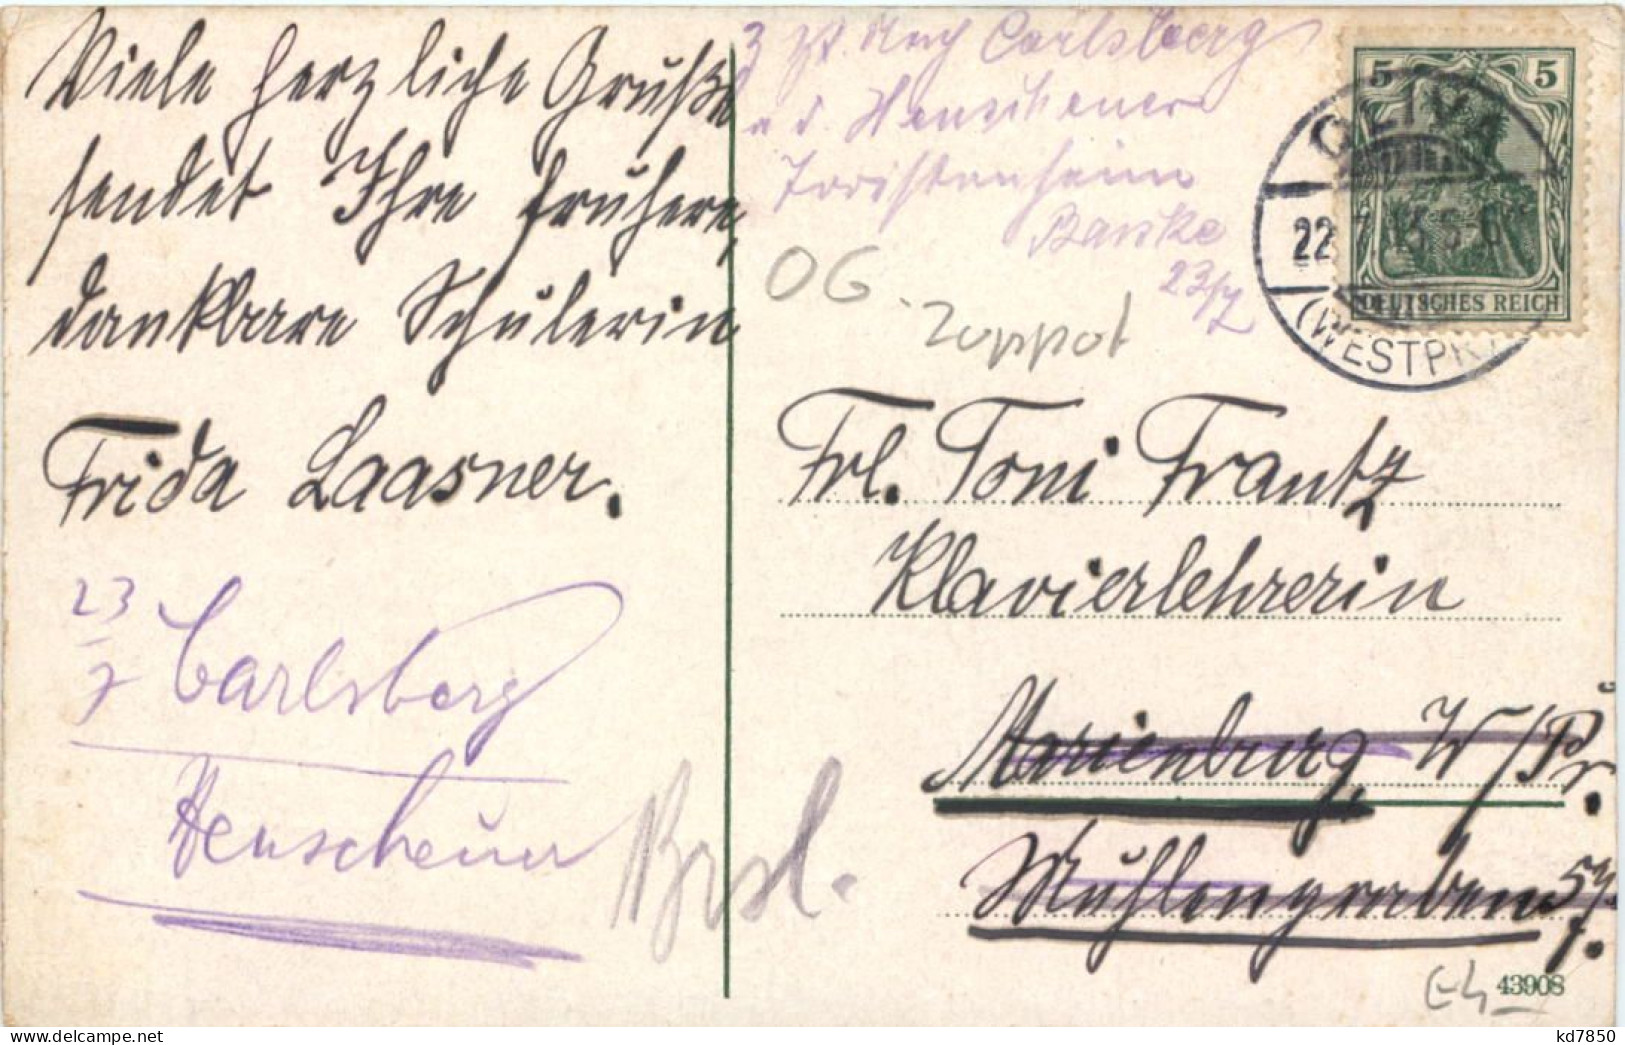 Viele herzliche Grüße
sendet Ihre frühere,
dankbare Schülerin
Frida Laasner.
23
7
Carlsberg
Heuscheuer
Brsl.
3 Zt. Carlsberg
a d. Heuscheuer
Touristenheim
23/7
OG - Zoppot
5 5
DEUTSCHES REICH
OLIVA
22. 7. 13. 5-6
(WESTPR.)
Frl. Toni Frantz
Klavierlehrerin
Marienburg W/Pr.
Mühlengraben
43908
kd7850